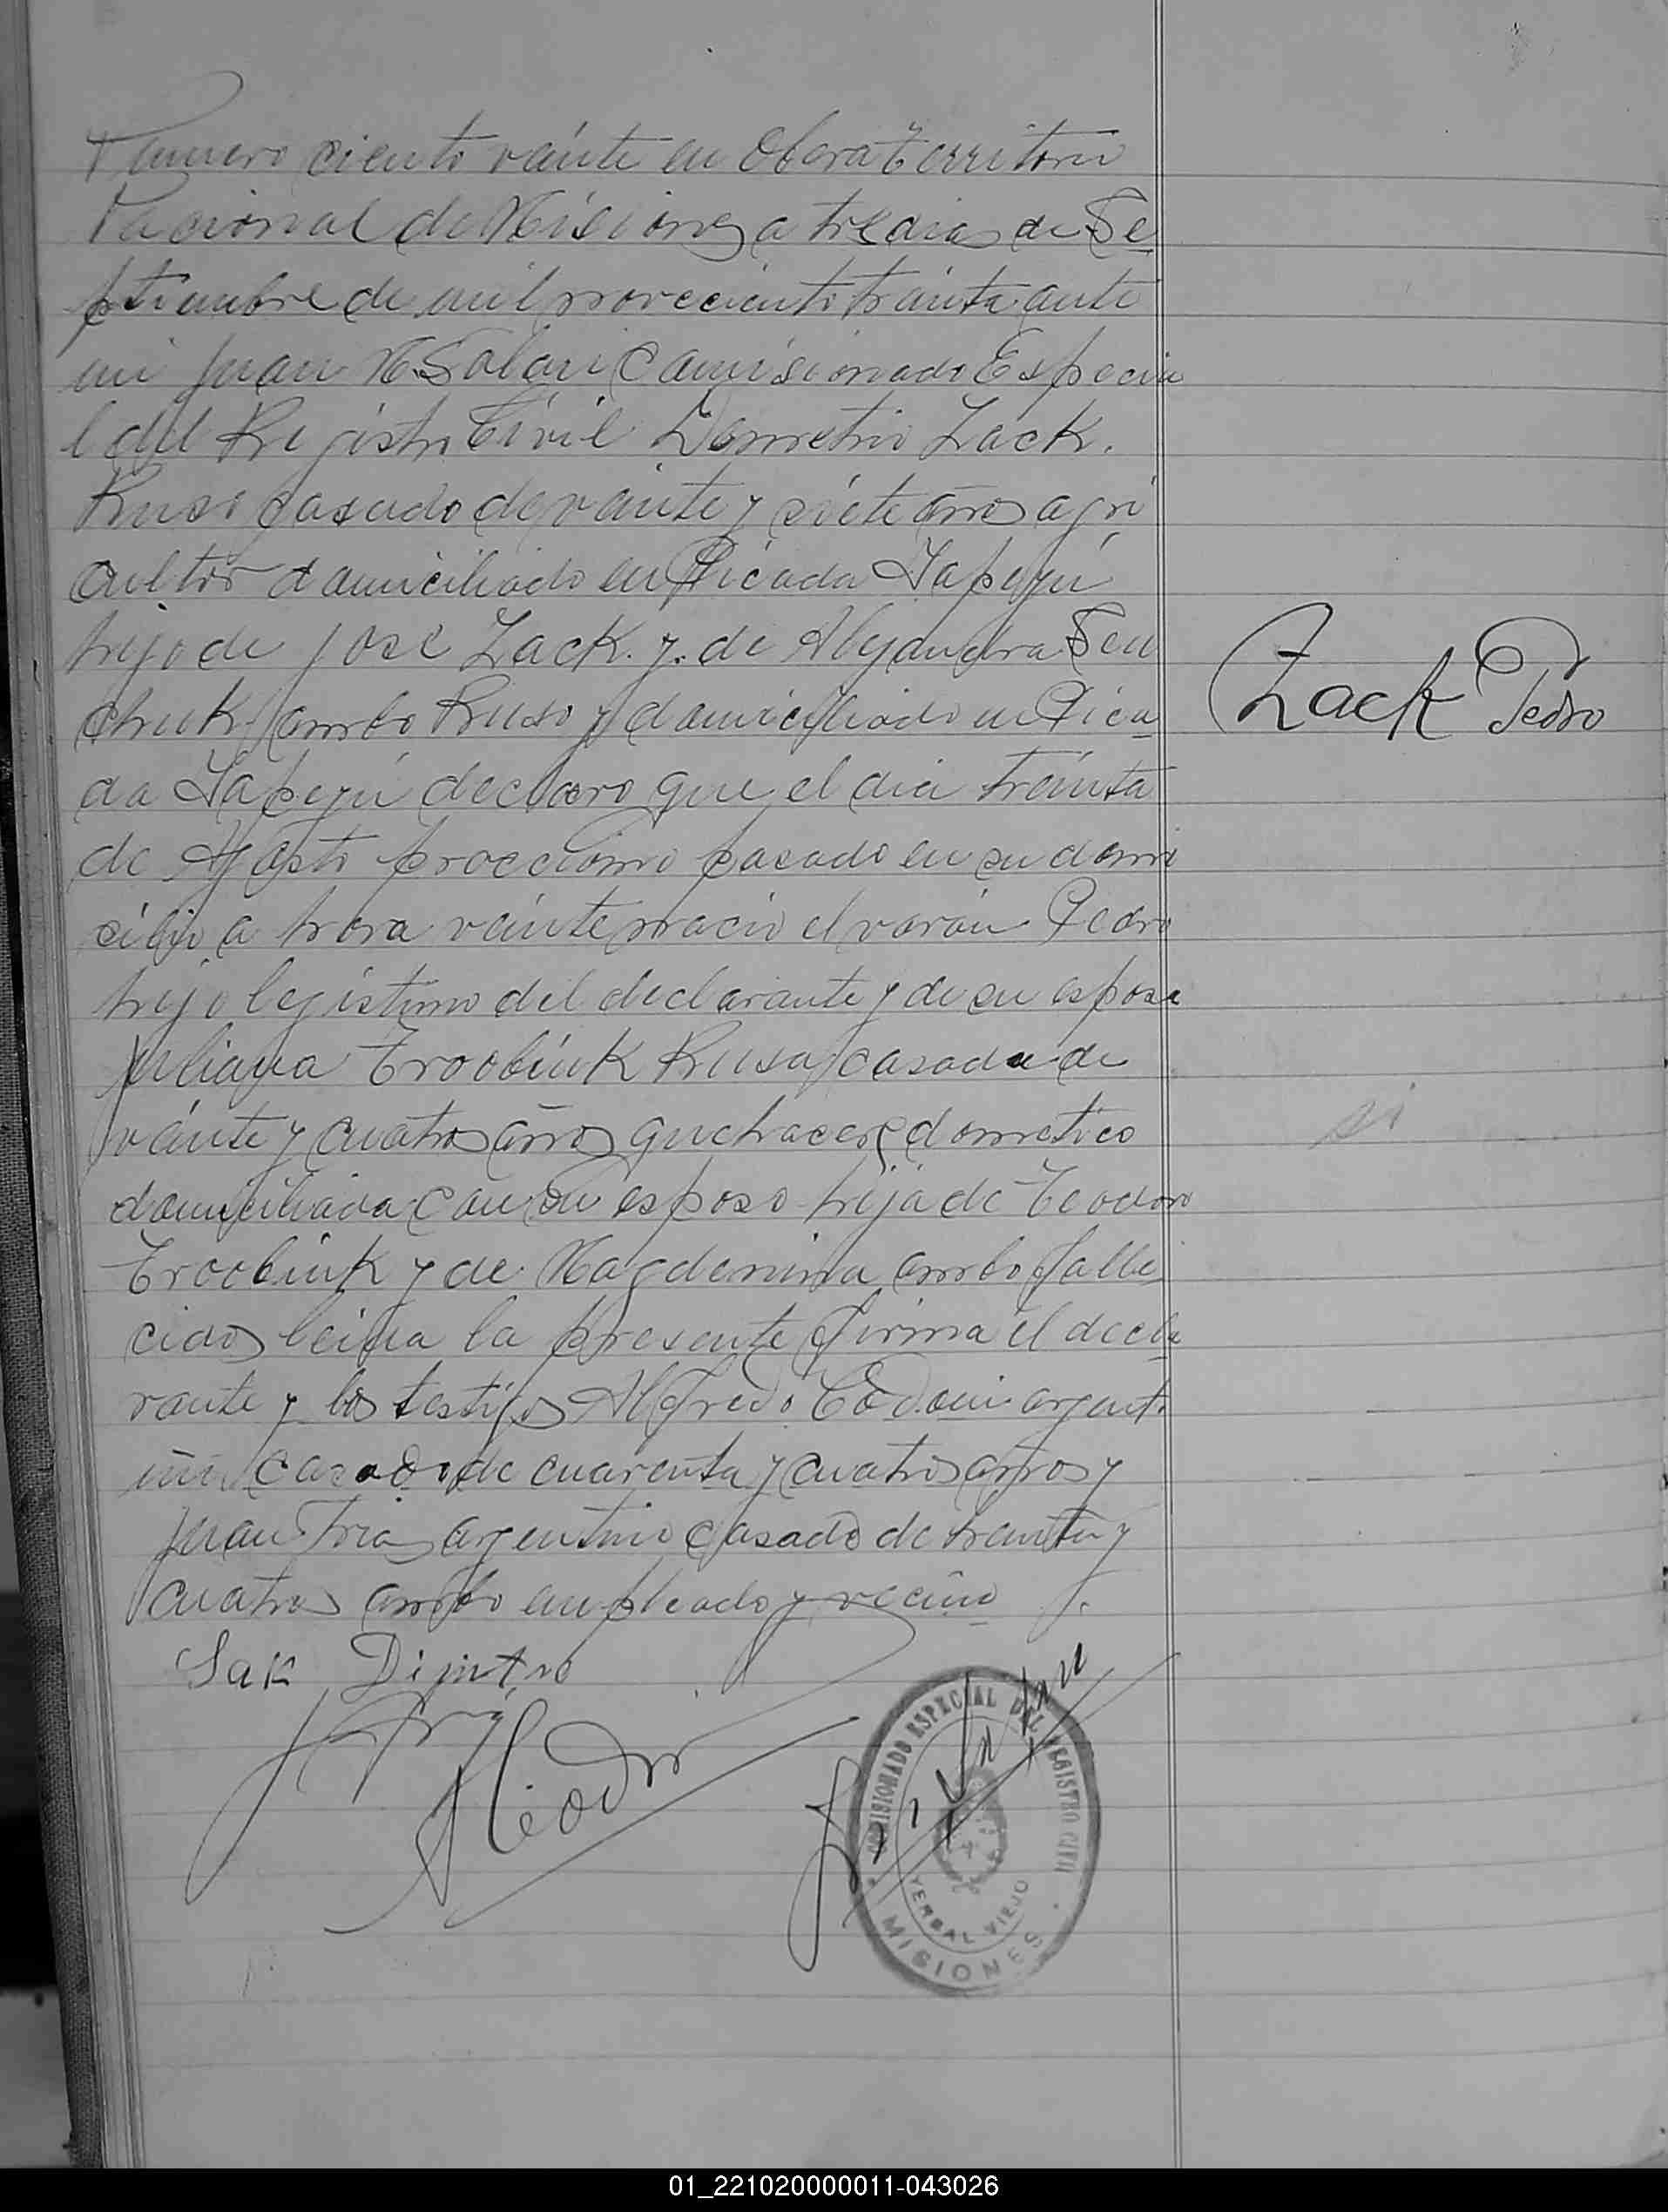 Numero ciento vainte en Obera Territorio
Nacional de Misiones a tre dias de Se
ptiembre de mil novecciento trainta ante
mi Juan M. Solari Comisionado Especia
l del Registro Civil Demetrio Zack.
Ruso casado de vainte y siete años agri
cultor domiciliado en Picada Yapeyú
hijo de José Zack. y. de Alejandra Sen
chuk ambo Ruso y domiciliado en Pica
da Yapeyú declaro que el dia treinta
de Agosto proccsimo pasado en su domi
cilio a hora veinte nacio el varon Pedro
hijo legistimo del declarante y de su esposa
Juliana Troobiuk Rusa casada de
vainte y cuatro años quehacere dometico
domiciliada con su esposo hija de Teodoro
Troobiuk y de Magdenina ambo falle
cidos leida la presente firma el decla
rante y los testigos Alfredo argenti
no casado de cuarenta y cuatro años y
Juan Fria argentino casado de treinta y
cuatro ambo empleado y vecino
Sak Dimtro
Zack Pedro
si
COMISIONADO ESPECIAL DEL REGISTRO CIVIL
YERBAL VIEJO
MISIONES
01_221020000011-043026